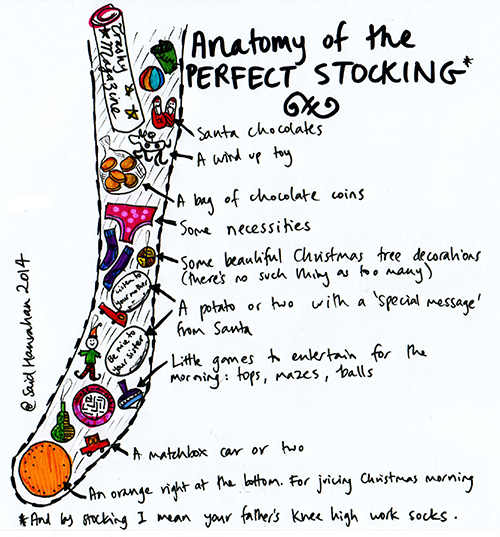 Anatomy of the
PERFECT STOCKING*
Trashy
*Magazine
Santa chocolates
A wind up toy
A bag of chocolate coins
Some necessities
Some beautiful Christmas tree decorations
(there's no such thing as too many)
Listen to
your mother
A potato or two with a 'special message'
from Santa
Be nice to
your sister
Little games to entertain for the
morning: tops, mazes, balls
A matchbox car or two
An orange right at the bottom. For juicing Christmas morning
*And by stocking I mean your father's knee high work socks.
@ Said Hanrahan 2014